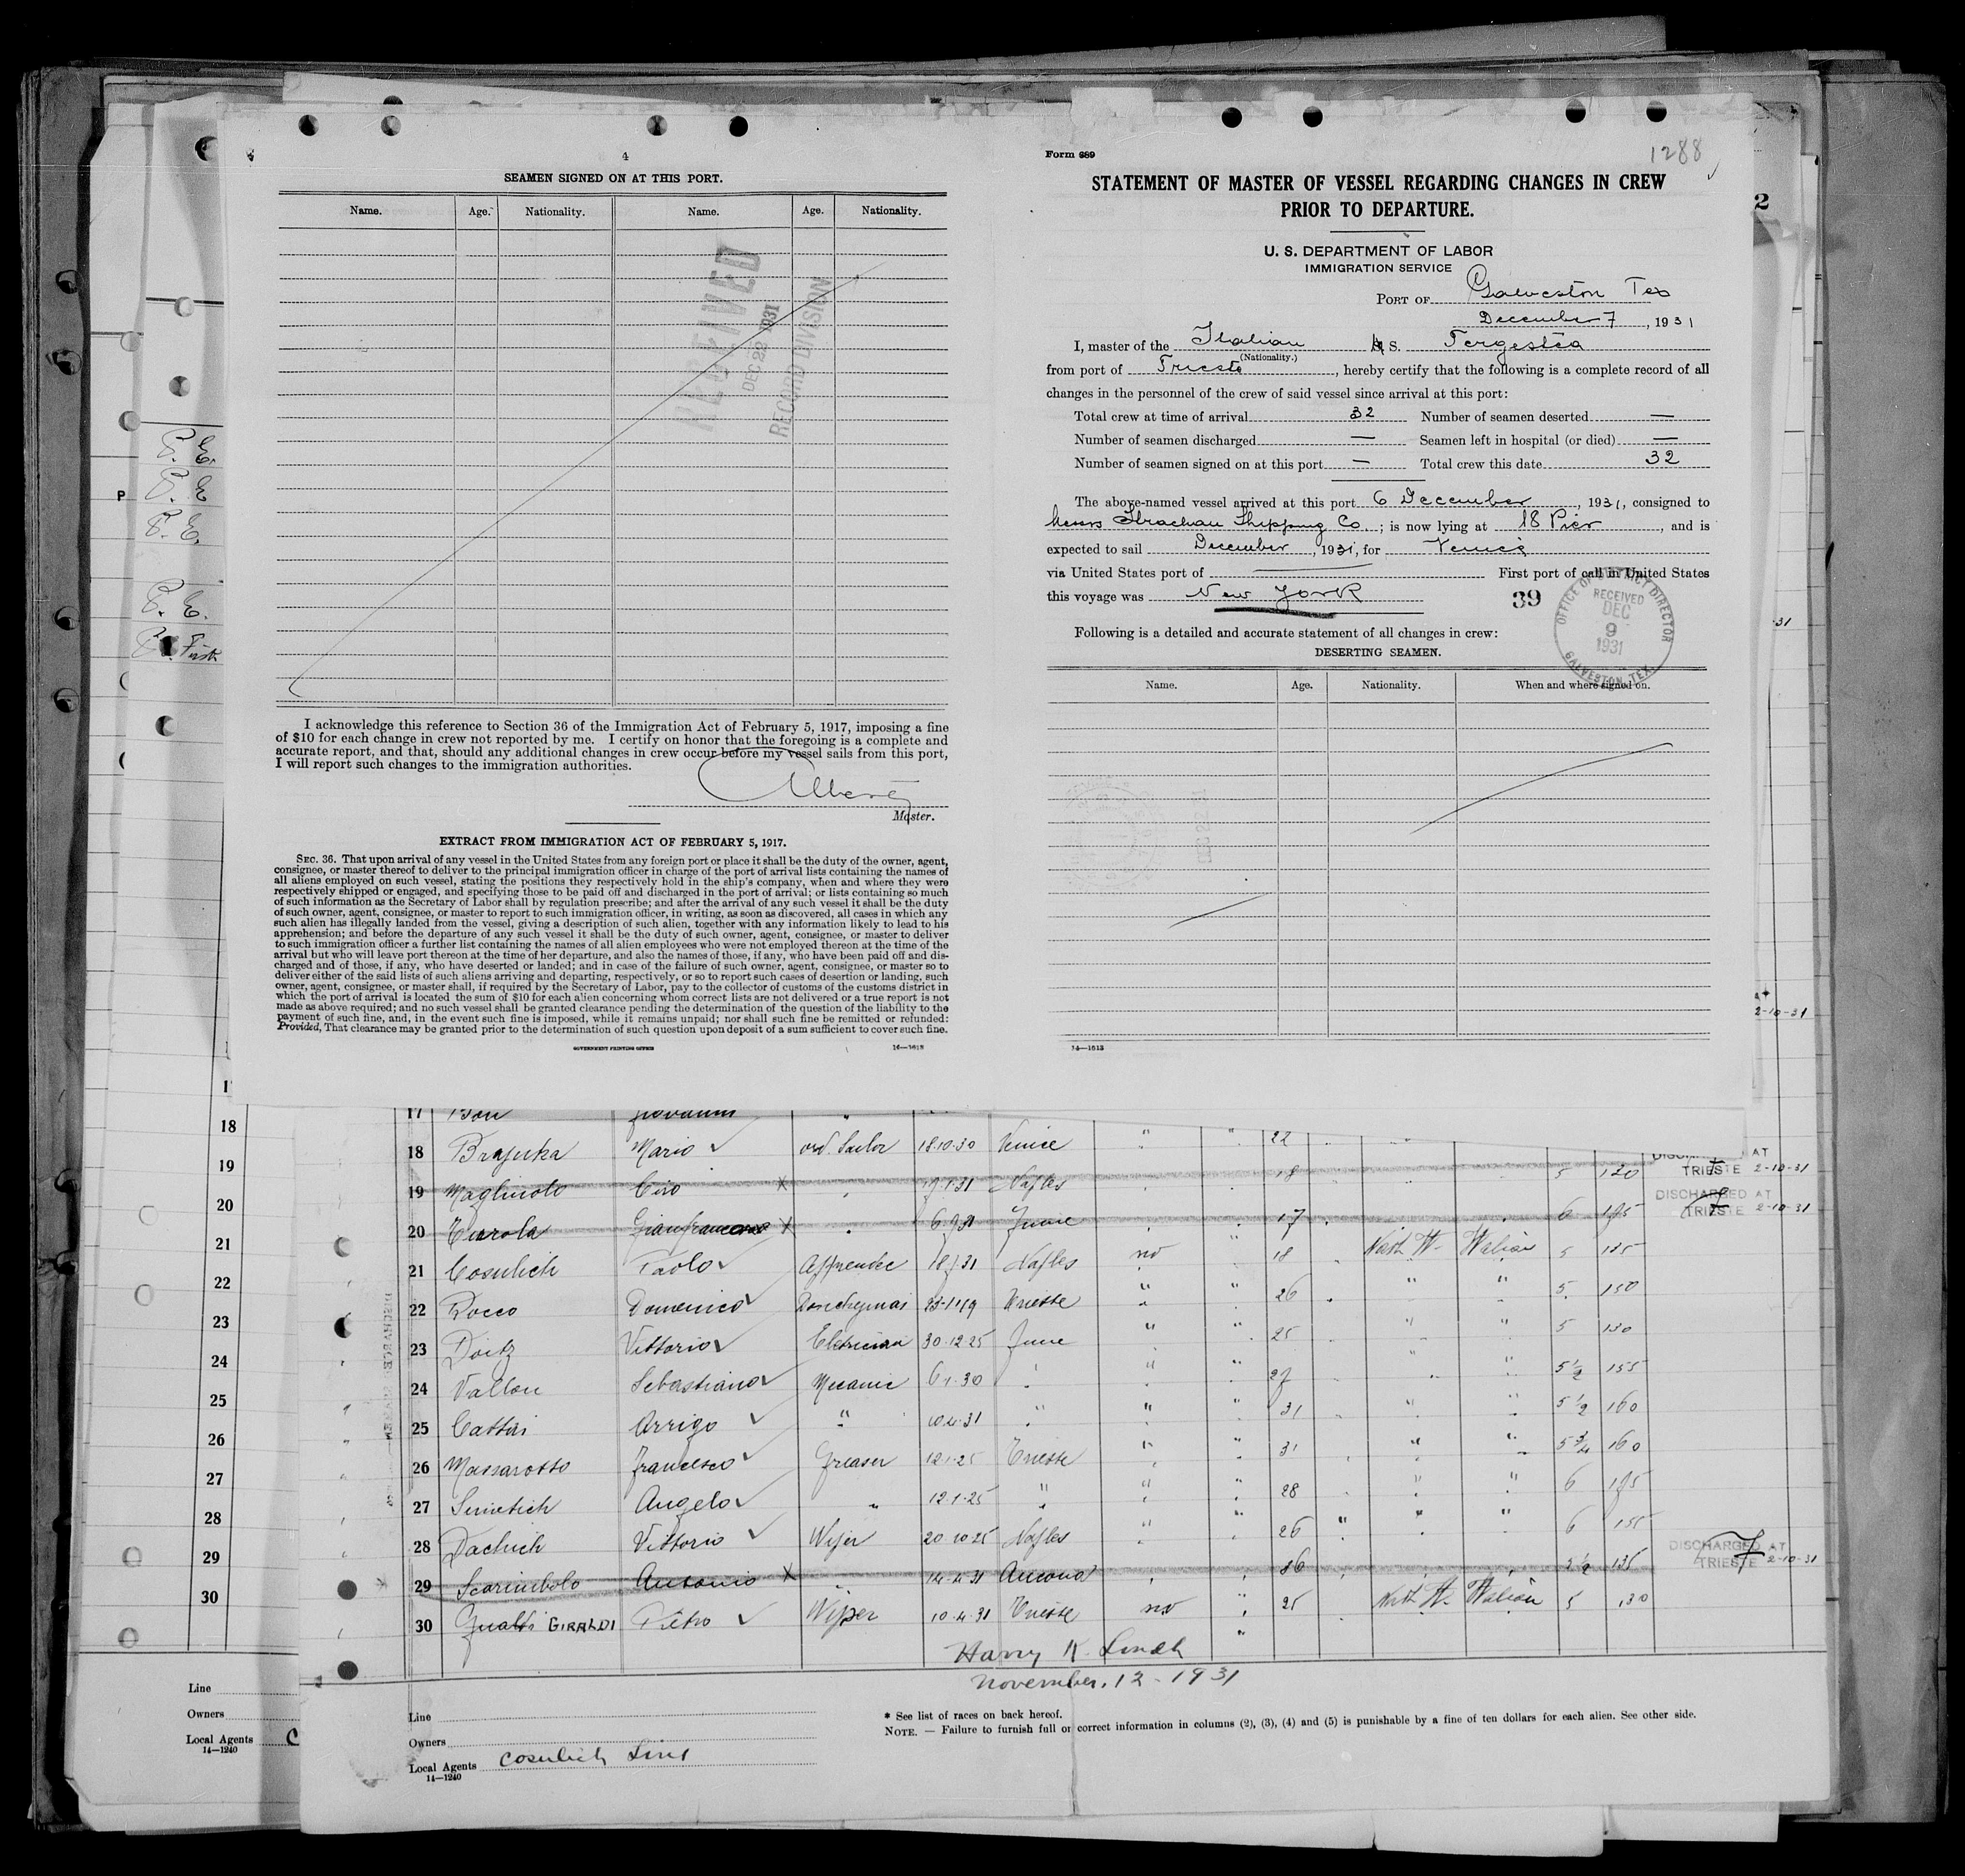 4
SEAMEN SIGNED ON AT THIS PORT.
Name. Age. Nationality. Name. Age. Nationality.
RECEIVED
DEC 22 1931
RECORD DIVISION
I acknowledge this reference to Section 36 of the Immigration Act of February 5, 1917, imposing a fine
of $10 for each change in crew not reported by me. I certify on honor that the foregoing is a complete and
accurate report, and that, should any additional changes in crew occur before my vessel sails from this port,
I will report such changes to the immigration authorities.
Master.
EXTRACT FROM IMMIGRATION ACT OF FEBRUARY 5, 1917.
SEC. 36. That upon arrival of any vessel in the United States from any foreign port or place it shall be the duty of the owner, agent,
consignee, or master thereof to deliver to the principal immigration officer in charge of the port of arrival lists containing the names of
all aliens employed on such vessel, stating the positions they respectively hold in the ship's company, when and where they were
respectively shipped or engaged, and specifying those to be paid off and discharged in the port of arrival; or lists containing so much
of such information as the Secretary of Labor shall by regulation prescribe; and after the arrival of any such vessel it shall be the duty
of such owner, agent, consignee, or master to report to such immigration officer, in writing, as soon as discovered, all cases in which any
such alien has illegally landed from the vessel, giving a description of such alien, together with any information likely to lead to his
apprehension; and before the departure of any such vessel it shall be the duty of such owner, agent, consignee, or master to deliver
to such immigration officer a further list containing the names of all alien employees who were not employed thereon at the time of the
arrival but who will leave port thereon at the time of her departure, and also the names of those, if any, who have been paid off and dis-
charged and of those, if any, who have deserted or landed; and in case of the failure of such owner, agent, consignee, or master so to
deliver either of the said lists of such aliens arriving and departing, respectively, or so to report such cases of desertion or landing, such
owner, agent, consignee, or master shall, if required by the Secretary of Labor, pay to the collector of customs of the customs district in
which the port of arrival is located the sum of $10 for each alien concerning whom correct lists are not delivered or a true report is not
made as above required; and no such vessel shall be granted clearance pending the determination of the question of the liability to the
payment of such fine, and, in the event such fine is imposed, while it remains unpaid; nor shall such fine be remitted or refunded:
Provided, That clearance may be granted prior to the determination of such question upon deposit of a sum sufficient to cover such fine.
GOVERNMENT PRINTING OFFICE
Form 689
1288
STATEMENT OF MASTER OF VESSEL REGARDING CHANGES IN CREW
PRIOR TO DEPARTURE.
U. S. DEPARTMENT OF LABOR
IMMIGRATION SERVICE
PORT OF Galveston Tex
December 7, 1931
I, master of the Italian S. Tergestea
(Nationality.)
from port of Trieste, hereby certify that the following is a complete record of all
changes in the personnel of the crew of said vessel since arrival at this port:
Total crew at time of arrival 32 Number of seamen deserted —
Number of seamen discharged — Seamen left in hospital (or died) —
Number of seamen signed on at this port — Total crew this date 32
The above-named vessel arrived at this port 6 December, 1931, consigned to
Messrs Strachan Shipping Co.; is now lying at 18 Pier, and is
expected to sail December, 1931, for Venice
via United States port of — First port of call in United States
this voyage was New York
39
OFFICE OF DISTRICT DIRECTOR
RECEIVED
DEC
9
1931
GALVESTON, TEX.
Following is a detailed and accurate statement of all changes in crew:
DESERTING SEAMEN.
Name. Age. Nationality. When and where signed on.
14—1613
17 Bon Giovanni
18 Brajuka Mario ord. Sailor 18.10.30 Venice " " 22
19 Maglinolo Ciro Naples 18 5 120 DISCHARGED AT TRIESTE 2-10-31
20 Gianfrancesco Fiume 17 6 175 DISCHARGED AT TRIESTE 2-10-31
21 Cosulich Paolo 31 Naples no " 18 North It. Italian 5 135
22 Rocco Domenico Trieste " " 26 " " 5 150
23 Doitz Vittorio 30.12.25 Fiume " " 25 " " 5 130
24 Vallon Sebastiano Mecanic 6.1.30 " " 27 " " 5½ 155
25 Cattai Arrigo " 10.4.31 " " " 31 " " 5½ 160
26 Massarotto Francesco Greaser 12.1.25 Trieste " " 31 " " 5¾ 160
27 Sinietich Angelo " 12.1.25 " " " 28 " " 6 175
28 Dachich Vittorio Wiper 20.10.25 Naples " " 26 " " 6 155
29 Scarimbolo Antonio 14.4.31 Ancona 135 DISCHARGED AT TRIESTE 2-10-31
30 Gualti GIRALDI Pietro Wiper 10.4.31 Trieste no " 25 North It. Italian 5 130
Harry K. Lindh
November. 12 - 1931
Line
Owners
Local Agents Cosulich Line
14—1240
* See list of races on back hereof.
NOTE. — Failure to furnish full or correct information in columns (2), (3), (4) and (5) is punishable by a fine of ten dollars for each alien. See other side.
2
P. E.
P P. E
P. E.
P. E.
18
19
20
21
22
23
24
25
26
27
28
29
30
Line
Owners
Local Agents C
14—1240
2-10-31